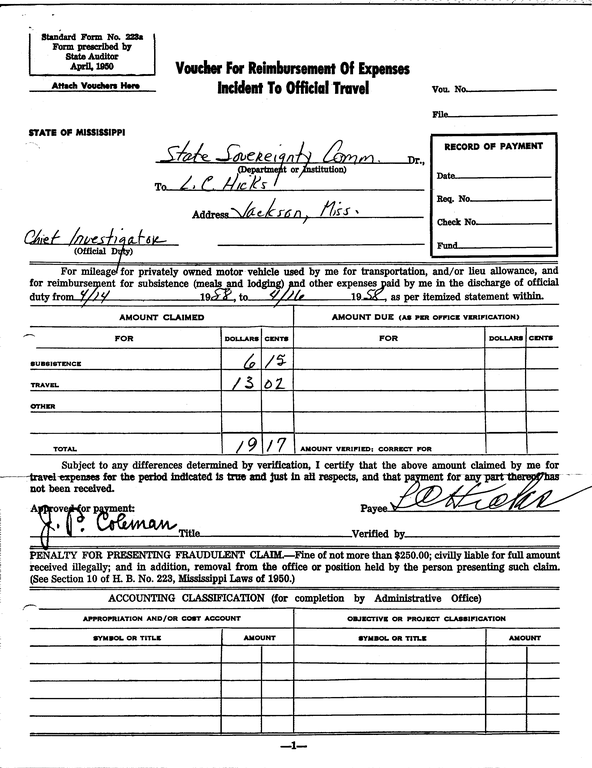 Standard Form No. 223a
Form prescribed by
State Auditor
April, 1950
Attach Vouchers Here
Voucher For Reimbursement Of Expenses
Incident To Official Travel
Vou. No.
File
STATE OF MISSISSIPPI
State Sovereignty Comm. Dr.,
(Department or Institution)
To L. C. Hicks
Address Jackson, Miss.
Chief Investigator
(Official Duty)
RECORD OF PAYMENT
Date
Req. No.
Check No.
Fund
For mileage for privately owned motor vehicle used by me for transportation, and/or lieu allowance, and
for reimbursement for subsistence (meals and lodging) and other expenses paid by me in the discharge of official
duty from 4/14 1958, to 4/16 1958, as per itemized statement within.
AMOUNT CLAIMED AMOUNT DUE (AS PER OFFICE VERIFICATION)
FOR DOLLARS CENTS FOR DOLLARS CENTS
SUBSISTENCE 6 15
TRAVEL 13 02
OTHER
TOTAL 19 17 AMOUNT VERIFIED; CORRECT FOR
Subject to any differences determined by verification, I certify that the above amount claimed by me for
travel expenses for the period indicated is true and just in all respects, and that payment for any part thereof has
not been received.
Approved for payment: Payee L C Hicks
J. P. Coleman Title Verified by
PENALTY FOR PRESENTING FRAUDULENT CLAIM.—Fine of not more than $250.00; civilly liable for full amount
received illegally; and in addition, removal from the office or position held by the person presenting such claim.
(See Section 10 of H. B. No. 223, Mississippi Laws of 1950.)
ACCOUNTING CLASSIFICATION (for completion by Administrative Office)
APPROPRIATION AND/OR COST ACCOUNT OBJECTIVE OR PROJECT CLASSIFICATION
SYMBOL OR TITLE AMOUNT SYMBOL OR TITLE AMOUNT
—1—